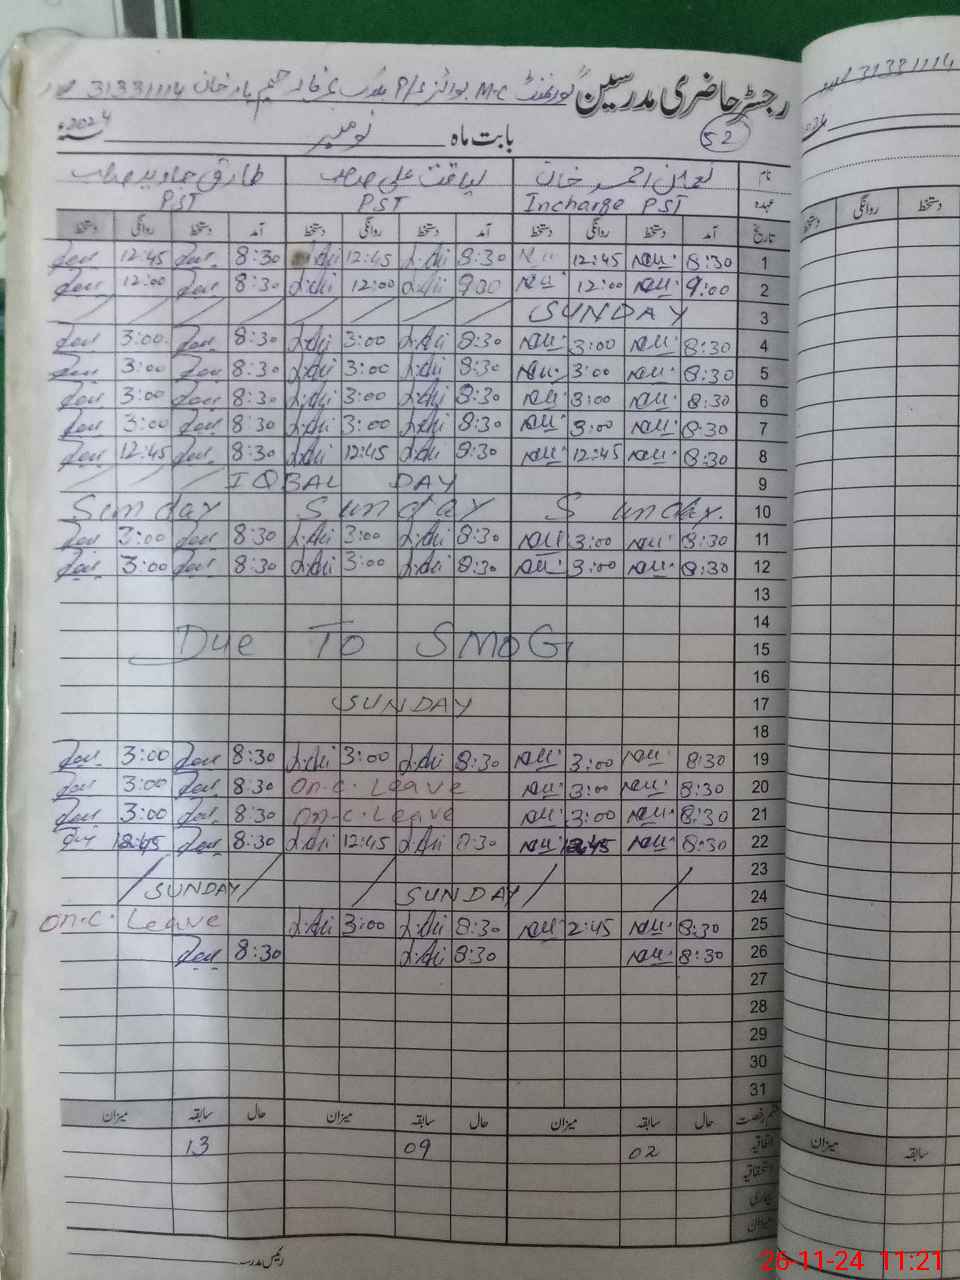 رجسٹر حاضری مدرسین گورنمنٹ M.C بوائز P/S یار خان 31331114
بابت ماہ نومبر 2024ء
52
نام خان لیاقت علی صاحب طارق جاوید صاحب
عہدہ Incharge PST PST PST
تاریخ آمد دستخط روانگی دستخط آمد دستخط روانگی دستخط آمد دستخط روانگی دستخط
1 8:30 12:45 8:30 L.Ali 12:45 L.Ali 8:30 12:45
2 9:00 12:00 9:00 L.Ali 12:00 L.Ali 8:30 12:00
3 SUNDAY
4 8:30 3:00 8:30 L.Ali 3:00 L.Ali 8:30 3:00
5 8:30 3:00 8:30 L.Ali 3:00 L.Ali 8:30 3:00
6 8:30 3:00 8:30 L.Ali 3:00 L.Ali 8:30 3:00
7 8:30 3:00 8:30 L.Ali 3:00 L.Ali 8:30 3:00
8 8:30 12:45 8:30 L.Ali 12:45 L.Ali 8:30 12:45
9 IQBAL DAY
10 Sunday Sunday Sunday
11 8:30 3:00 8:30 L.Ali 3:00 L.Ali 8:30 3:00
12 8:30 3:00 8:30 L.Ali 3:00 L.Ali 8:30 3:00
13
14
15 Due To SMOG
16
17 SUNDAY
18
19 8:30 3:00 8:30 L.Ali 3:00 L.Ali 8:30 3:00
20 8:30 3:00 on-c. Leave 8:30 3:00
21 8:30 3:00 on-c. Leave 8:30 3:00
22 8:30 12:45 8:30 L.Ali 12:45 L.Ali 8:30 12:45
23
24 SUNDAY SUNDAY
25 8:30 2:45 8:30 L.Ali 3:00 L.Ali on-c. Leave
26 8:30 8:30 L.Ali 8:30
27
28
29
30
31
رخصت حال سابقہ میزان حال سابقہ میزان حال سابقہ میزان
اتفاقیہ 02 09 13
استحقاقیہ
بیماری
میزان
رئیس مدرسہ
31331114
دستخط روانگی دستخط
سابقہ میزان
26-11-24 11:21